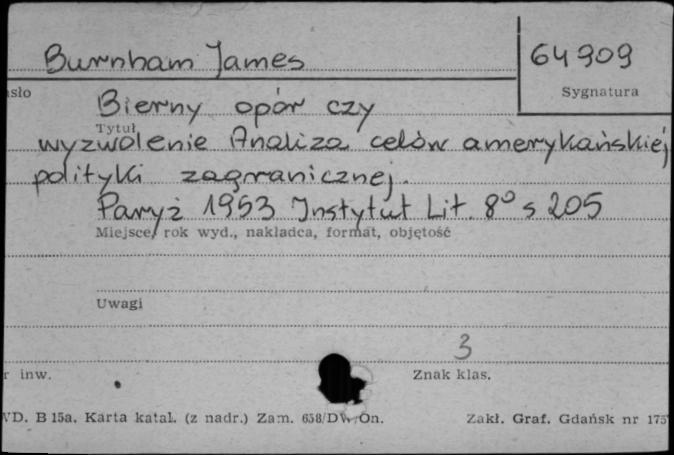 Burnham James
64909
asło
Sygnatura
Bierny opór czy
Tytuł
wyzwolenie Analiza celów amerykańskiej
polityki zagranicznej.
Paryż 1953 Instytut Lit. 8° s 205
Miejsce, rok wyd., nakładca, format, objętość
Uwagi
3
r inw.
Znak klas.
VD. B 15a. Karta katal. (z nadr.) Zam. 658/DW/On.
Zakł. Graf. Gdańsk nr 175